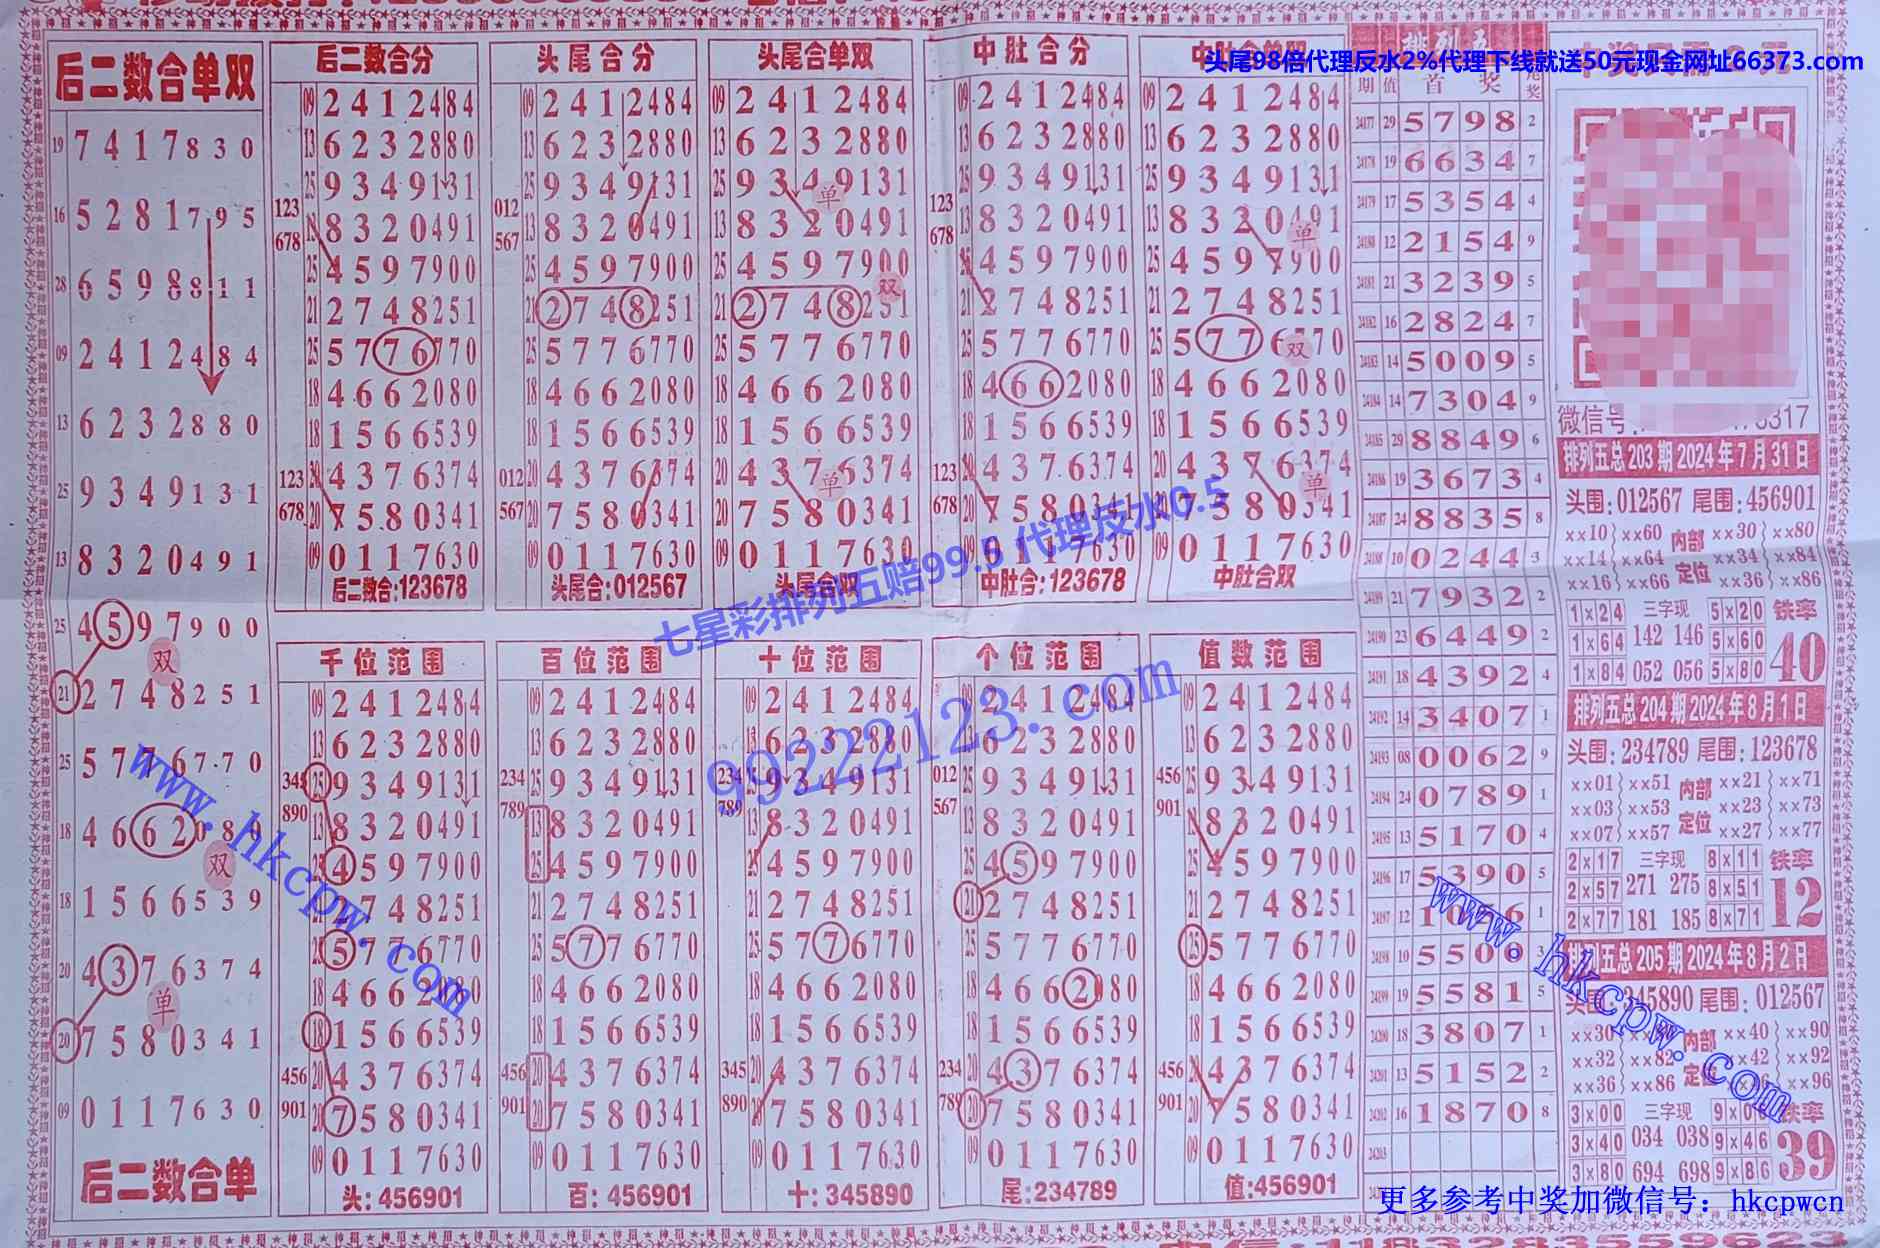 头尾98倍代理反水2%代理下线就送50元现金网址66373.com
后二数合单双
19 7417830
16 5281795
28 6598811
09 2412484
13 6232880
25 9349131
13 8320491
25 4597900
双
21 2748251
25 5776770
18 4662080
双
18 1566539
20 4376374
单
20 7580341
09 0117630
后二数合单
后二数合分
09 2412484
13 6232880
25 9349131
123
678
13 8320491
25 4597900
21 2748251
25 5776770
18 4662080
18 1566539
123
678
20 4376374
20 7580341
09 0117630
后二数合:123678
头尾合分
09 2412484
13 6232880
25 9349131
012
567
13 8320491
25 4597900
21 2748251
25 5776770
18 4662080
18 1566539
012
567
20 4376374
20 7580341
09 0117630
头尾合:012567
头尾合单双
09 2412484
13 6232880
25 9349131
单
13 8320491
25 4597900
双
21 2748251
25 5776770
18 4662080
18 1566539
20 4376374
单
20 7580341
09 0117630
头尾合双
中肚合分
09 2412484
13 6232880
25 9349131
123
678
13 8320491
25 4597900
21 2748251
25 5776770
18 4662080
18 1566539
123
678
20 4376374
20 7580341
09 0117630
中肚合:123678
中肚合单双
09 2412484
13 6232880
25 9349131
13 8320491
单
25 4597900
21 2748251
25 5776770
双
18 4662080
18 1566539
20 4376374
单
20 7580341
09 0117630
中肚合双
千位范围
09 2412484
13 6232880
345
890
25 9349131
13 8320491
25 4597900
21 2748251
25 5776770
18 4662080
18 1566539
456
901
20 4376374
20 7580341
09 0117630
头:456901
百位范围
09 2412484
13 6232880
234
789
25 9349131
13 8320491
25 4597900
21 2748251
25 5776770
18 4662080
18 1566539
456
901
20 4376374
20 7580341
09 0117630
百:456901
十位范围
09 2412484
13 6232880
234
789
25 9349131
13 8320491
25 4597900
21 2748251
25 5776770
18 4662080
18 1566539
345
890
20 4376374
20 7580341
09 0117630
十:345890
个位范围
09 2412484
13 6232880
012
567
25 9349131
13 8320491
25 4597900
21 2748251
25 5776770
18 4662080
18 1566539
234
789
20 4376374
20 7580341
09 0117630
尾:234789
值数范围
09 2412484
13 6232880
456
901
25 9349131
13 8320491
25 4597900
21 2748251
25 5776770
18 4662080
18 1566539
456
901
20 4376374
20 7580341
09 0117630
值:456901
排列五
期 值 首奖 尾奖
24177 29 5798 2
24178 19 6634 7
24179 17 5354 4
24180 12 2154 9
24181 21 3239 5
24182 16 2824 7
24183 14 5009 5
24184 14 7304 9
24185 29 8849 6
24186 19 3673 4
24187 24 8835 8
24188 10 0244 3
24189 21 7932 2
24190 23 6449 2
24191 18 4392 4
24192 14 3407 1
24193 08 0062 9
24194 24 0789 1
24195 13 5170 4
24196 17 5390 5
24197 12 1056 1
24198 10 5500 3
24199 19 5581 5
24200 18 3807 1
24201 13 5152 2
24202 16 1870 8
24203
微信号
排列五总203期2024年7月31日
头围:012567 尾围:456901
xx10 xx60 内部 xx30 xx80
xx14 xx64 定位 xx34 xx84
xx16 xx66 xx36 xx86
1x24 三字现 5x20 铁率
1x64 142 146 5x60 40
1x84 052 056 5x80
排列五总204期2024年8月1日
头围:234789 尾围:123678
xx01 xx51 内部 xx21 xx71
xx03 xx53 定位 xx23 xx73
xx07 xx57 xx27 xx77
2x17 三字现 8x11 铁率
2x57 271 275 8x51 12
2x77 181 185 8x71
排列五总205期2024年8月2日
头围:345890 尾围:012567
xx30 内部 xx40 xx90
xx32 xx82 定位 xx42 xx92
xx36 xx86 xx96
3x00 三字现 铁率
3x40 034 038 9x46 39
3x80 694 698 9x86
七星彩排列五赔99.5 代理反水0.5
99222123.com
www.hkcpw.com
www.hkcpw.com
更多参考中奖加微信号: hkcpwcn